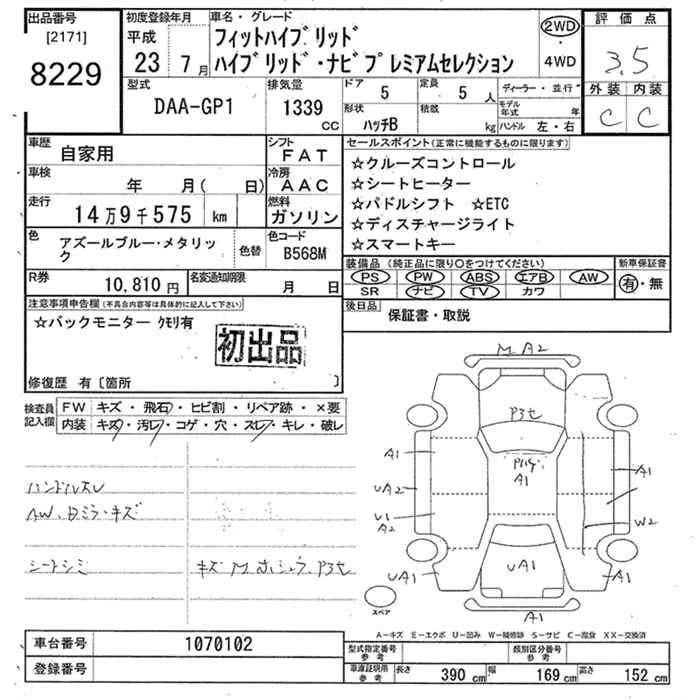 出品番号
[2171]
8229
初度登録年月
平成
23 7月
車名・グレード
フィットハイブリッド
ハイブリッド・ナビプレミアムセレクション
2WD
・
4WD
評価点
3.5
外装 内装
C C
型式
DAA-GP1
排気量
1339
CC
ドア
5
定員
5 人
形状
ハッチB
積載
kg
ディーラー・並行
モデル年式 年
ハンドル 左・右
車歴
自家用
シフト
FAT
車検
年 月( 日)
冷房
AAC
走行
14万9千575 km
燃料
ガソリン
色
アズールブルー・メタリック
色替
色コード
B568M
R券
10,810円
名変通知期限
月 日
セールスポイント(正常に機能するものに限ります)
☆クルーズコントロール
☆シートヒーター
☆パドルシフト ☆ETC
☆ディスチャージライト
☆スマートキー
装備品(純正品に限り○をつけてください)
PS PW ABS エアB AW
SR ナビ TV カワ
新車保証書
有・無
後日品
保証書・取説
注意事項申告欄(不具合内容等は具体的に記入して下さい)
☆バックモニター クモリ有
初出品
修復歴 有〔箇所 〕
検査員記入欄
FW キズ・飛石・ヒビ割・リペア跡・×要
内装 キズ・汚レ・コゲ・穴・スレ・キレ・破レ
ハンドルスレ
AW、Dミラーキズ
シートシミ
キズ M ホシュウ P3セ
M A2
P3セ
A1
A1
UA2
U1
A2
A1
W2
UA1
UA1
A1
A1
スペア
A-キズ E-エクボ U-凹み W-補修跡 S-サビ C-腐食 XX-交換済
車台番号
1070102
登録番号
型式指定番号
参考
類別区分番号
参考
車庫証明用
参考
長さ 390 cm 幅 169 cm 高さ 152 cm